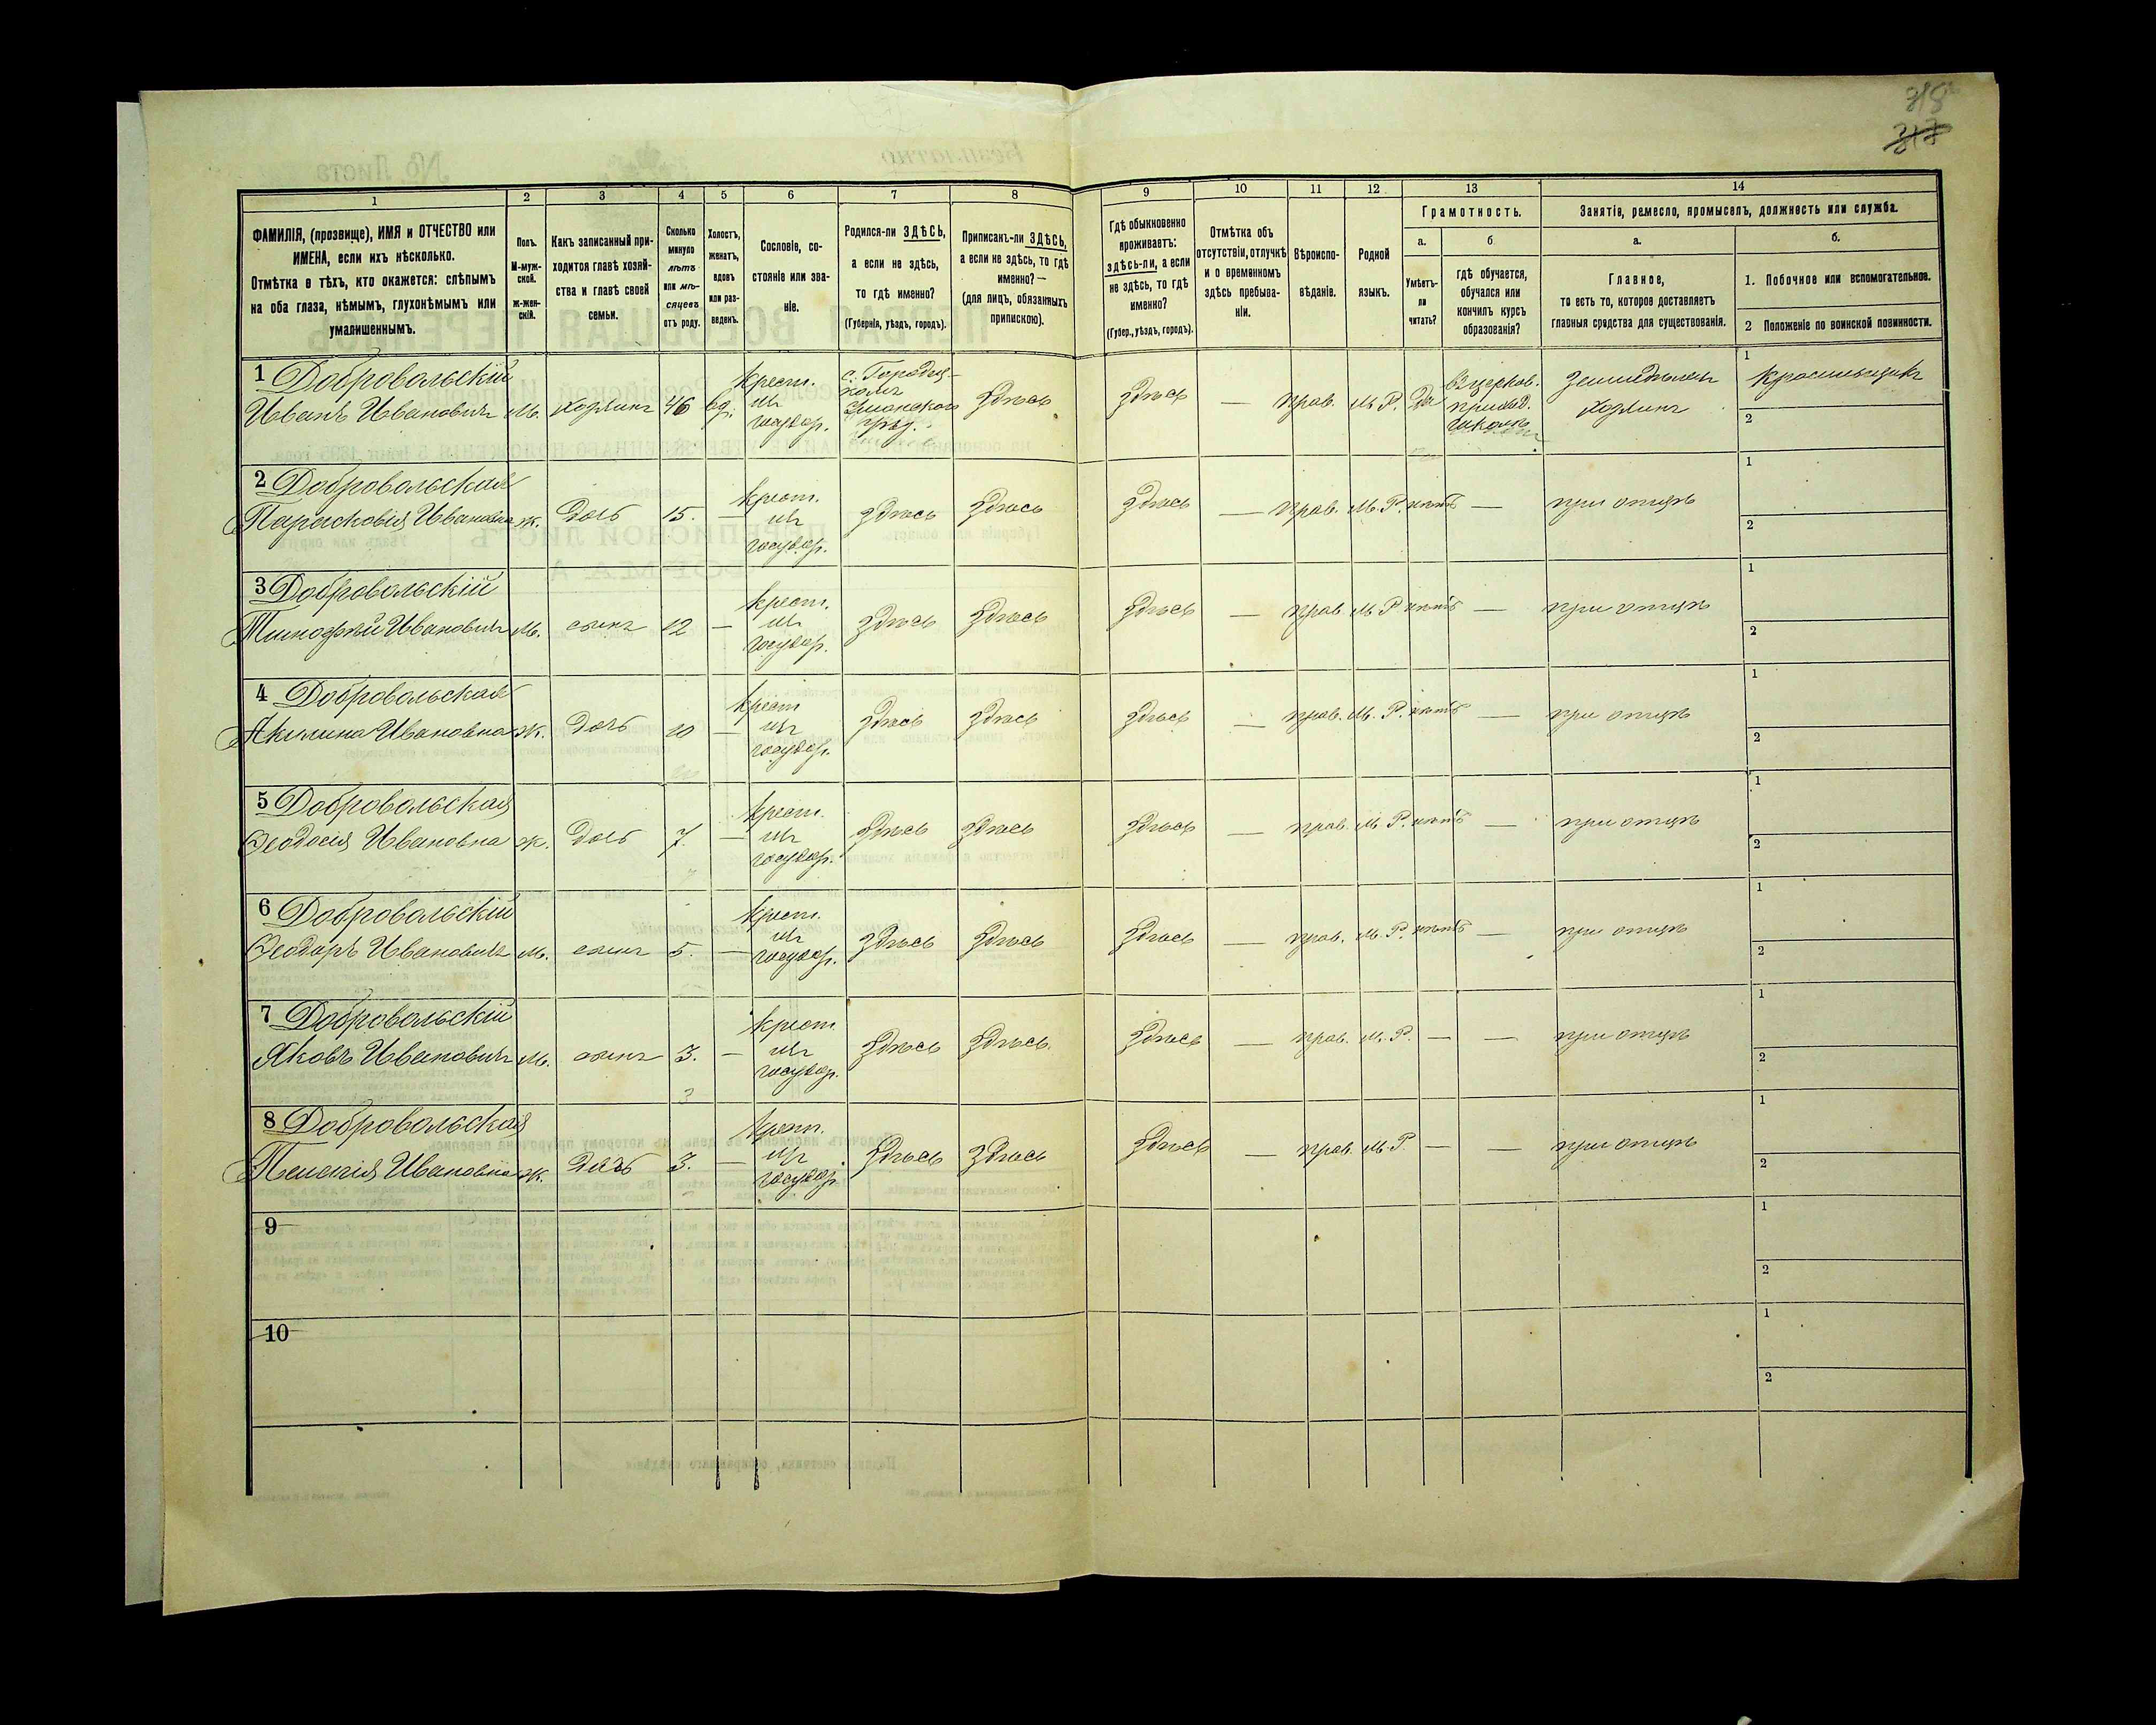 318
317
1
2
3
4
5
6
7
8
9
10
11
12
13
14
ФАМИЛІЯ, (прозвище), ИМЯ и ОТЧЕСТВО или
ИМЕНА, если ихъ нѣсколько.
Отмѣтка о тѣхъ, кто окажется: слѣпымъ
на оба глаза, нѣмымъ, глухонѣмымъ или
умалишеннымъ.
Полъ.
М-муж-
ской.
ж-жен-
скій.
Какъ записанный при-
ходится главѣ хозяй-
ства и главѣ своей
семьи.
Сколько
минуло
лѣтъ
или мѣ-
сяцевъ
отъ роду.
Холостъ,
женатъ,
вдовъ
или раз-
веденъ.
Сословіе, со-
стояніе или зва-
ніе.
Родился-ли ЗДѢСЬ,
а если не здѣсь,
то гдѣ именно?
(Губернія, уѣздъ, городъ).
Приписанъ-ли ЗДѢСЬ,
а если не здѣсь, то гдѣ
именно?—
(для лицъ, обязанныхъ
припискою).
Гдѣ обыкновенно
проживаетъ:
здѣсь-ли, а если
не здѣсь, то гдѣ
именно?
(Губер., уѣздъ, городъ).
Отмѣтка объ
отсутствіи, отлучкѣ
и о временномъ
здѣсь пребыва-
ніи.
Вѣроиспо-
вѣданіе.
Родной
языкъ.
Грамотность.
а.
Умѣетъ-
ли
читать?
б
гдѣ обучается,
обучался или
кончилъ курсъ
образованія?
Занятіе, ремесло, промыселъ, должность или служба.
а.
Главное,
то есть то, которое доставляетъ
главныя средства для существованія.
б.
1. Побочное или вспомогательное.
2 Положеніе по воинской повинности.
1 Добровольскій
Иванъ Ивановичъ м. хозяинъ 46 вд. крест. из государ. с. Городец- уѣзд. здѣсь здѣсь — прав. м. Р. да въ церков. приход. школѣ земледѣлецъ хозяинъ 1 красильщикъ 2
2 Добровольская
Парасковія Ивановна ж. дочь 15. — крест. из государ. здѣсь здѣсь здѣсь — прав. м. Р. нѣтъ — при отцѣ 1 2
3 Добровольскій
Тимофѣй Ивановичъ м. сынъ 12 — крест. из государ. здѣсь здѣсь здѣсь — прав м Р нѣтъ — при отцѣ 1 2
4 Добровольская
Акилина Ивановна ж. дочь 10 — крест из государ. здѣсь здѣсь здѣсь — прав. м. Р. нѣтъ — при отцѣ 1 2
5 Добровольская
Феодосія Ивановна ж. дочь 7. — крест. из государ. здѣсь здѣсь здѣсь — прав. м. Р. нѣтъ — при отцѣ 1 2
6 Добровольскій
Феодоръ Ивановичъ м. сынъ 5. — крест. из государ. здѣсь здѣсь здѣсь — прав. м. Р. нѣтъ — при отцѣ 1 2
7 Добровольскій
Яковъ Ивановичъ м. сынъ 3. — крест из государ. здѣсь здѣсь. здѣсь — прав. м. Р. — — при отцѣ 1 2
8 Добровольская
Пелагія Ивановна ж. дочь 3. — крест. из государ. здѣсь здѣсь здѣсь — прав. м. Р. — — при отцѣ 1 2
9 1 2
10 1 2